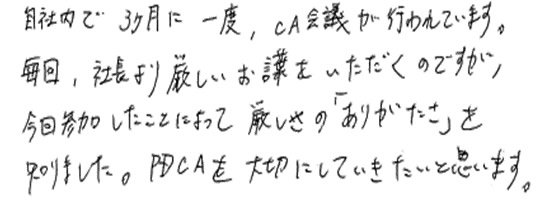 自社内で3ヶ月に一度，CA会議が行われています。
毎回，社長より厳しいお言葉をいただくのですが，
今回参加したことによって厳しさの「ありがたさ」を
知りました。PDCAを大切にしていきたいと思います。